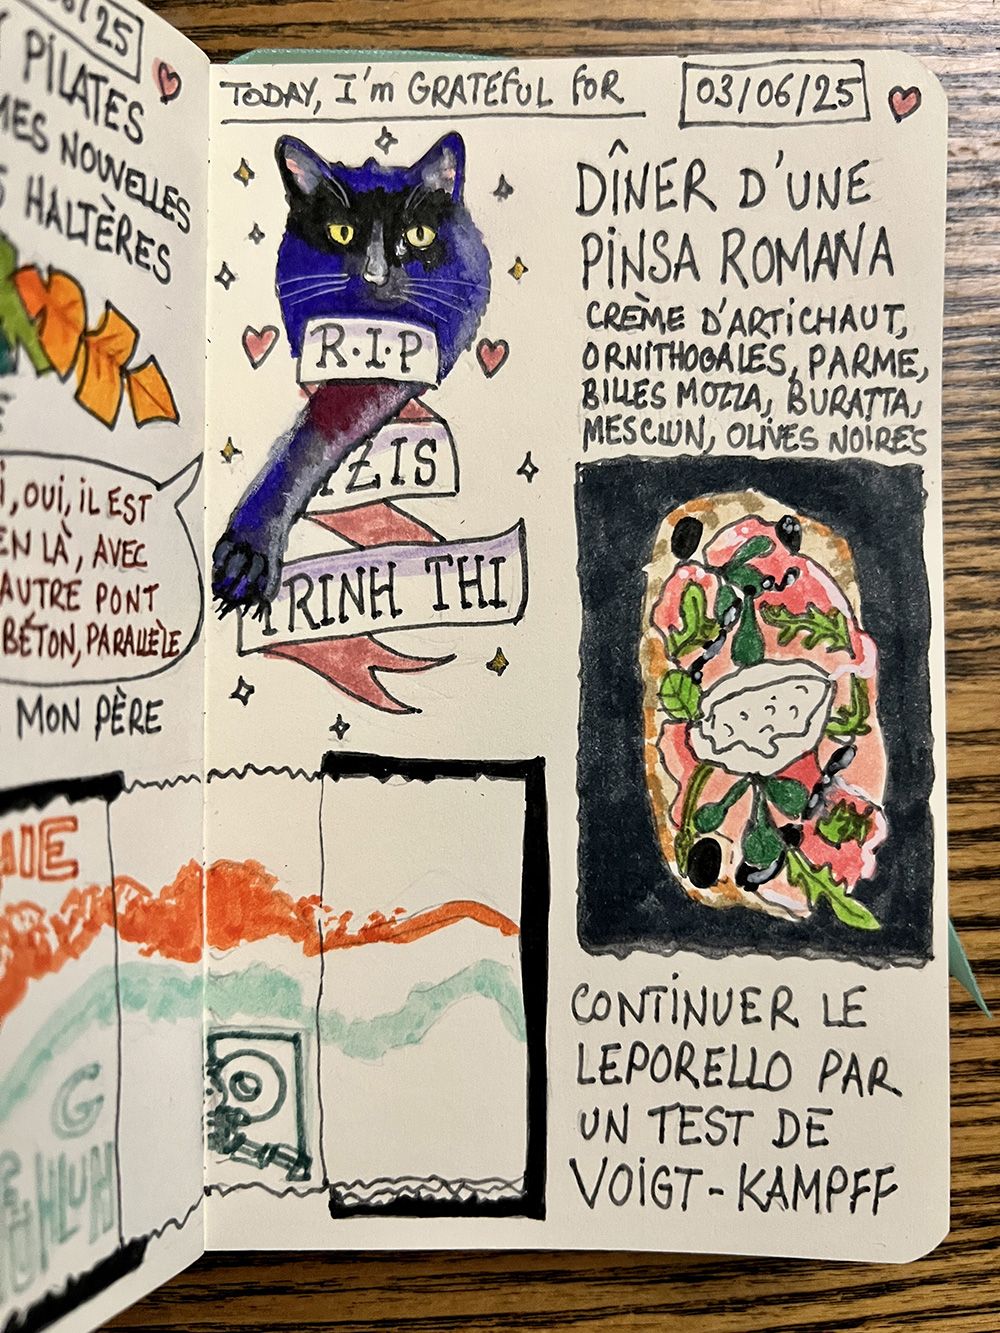 25
PILATES
MES NOUVELLES
HALTÈRES
OUI, IL EST
EN LÀ, AVEC
AUTRE PONT
BÉTON, PARALLÈLE
MON PÈRE
G
TODAY, I'm GRATEFUL FOR
03/06/25
R.I.P
IZIS
TRINH THI
DÎNER D'UNE
PINSA ROMANA
CRÈME D'ARTICHAUT,
ORNITHOGALES, PARME,
BILLES MOZZA, BURATTA,
MESCLUN, OLIVES NOIRES
CONTINUER LE
LEPORELLO PAR
UN TEST DE
VOIGT-KAMPFF